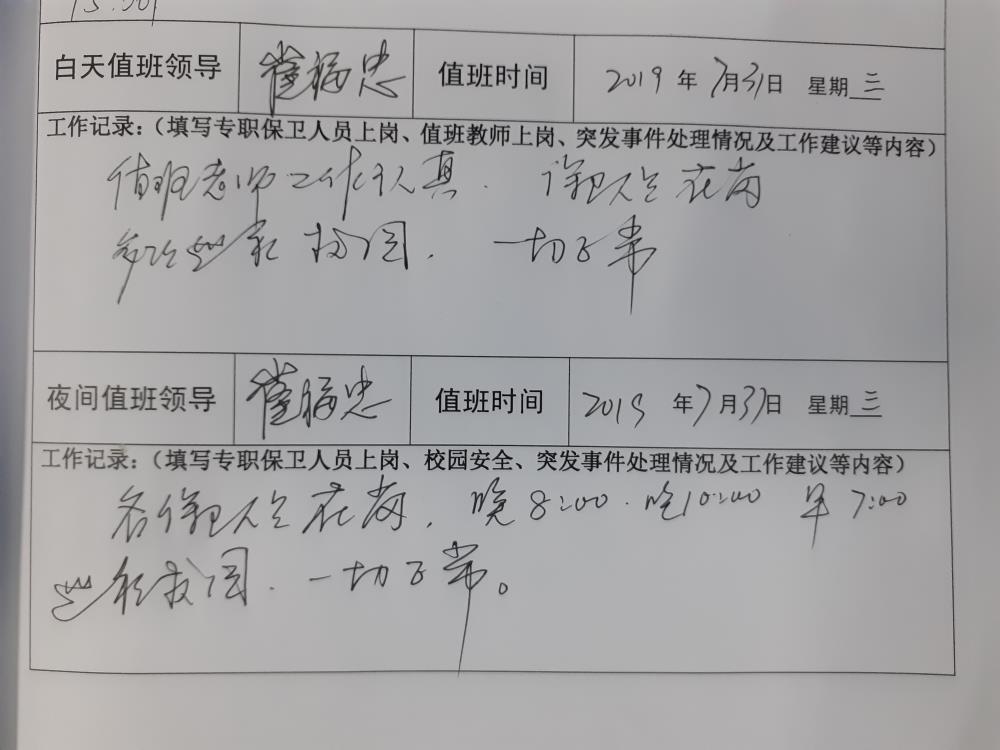 15:00
白天值班领导 崔福忠 值班时间 2019 年 7月31日 星期 三
工作记录：（填写专职保卫人员上岗、值班教师上岗、突发事件处理情况及工作建议等内容）
值班老师工作认真. 保卫人员在岗
多次巡视校园. 一切正常
夜间值班领导 崔福忠 值班时间 2019 年 7月31日 星期 三
工作记录：（填写专职保卫人员上岗、校园安全、突发事件处理情况及工作建议等内容）
各保卫人员在岗, 晚8:00. 晚10:00 早7:00
巡视校园. 一切正常。